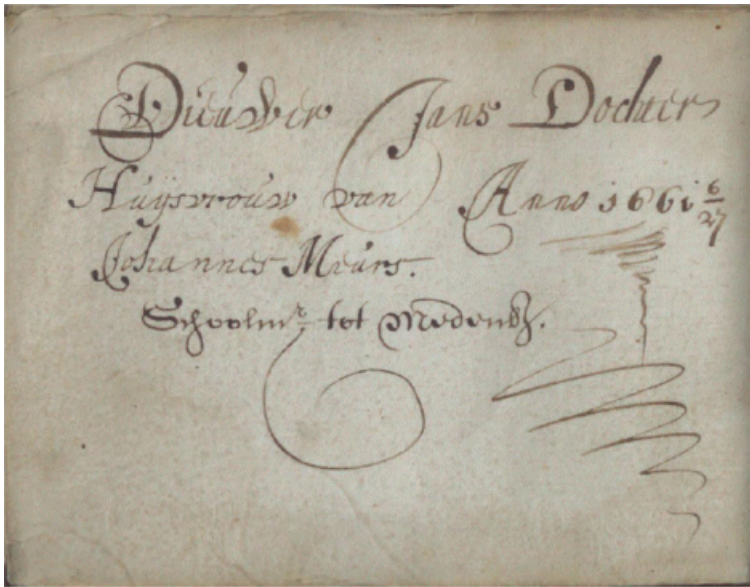 Dieuwer Jans Dochter
Huijsvrouw van Anno 1661 6/27
Johannes Meurs.
Schoolmr tot Medenb.